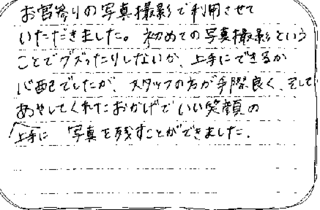 お宮参りの写真撮影で利用させて
いただきました。初めての写真撮影という
ことでグズったりしないか、上手にできるか
心配でしたが、スタッフの方が手際良く、そして
あやしてくれたおかげでいい笑顔の
上手に 写真を残すことができました。